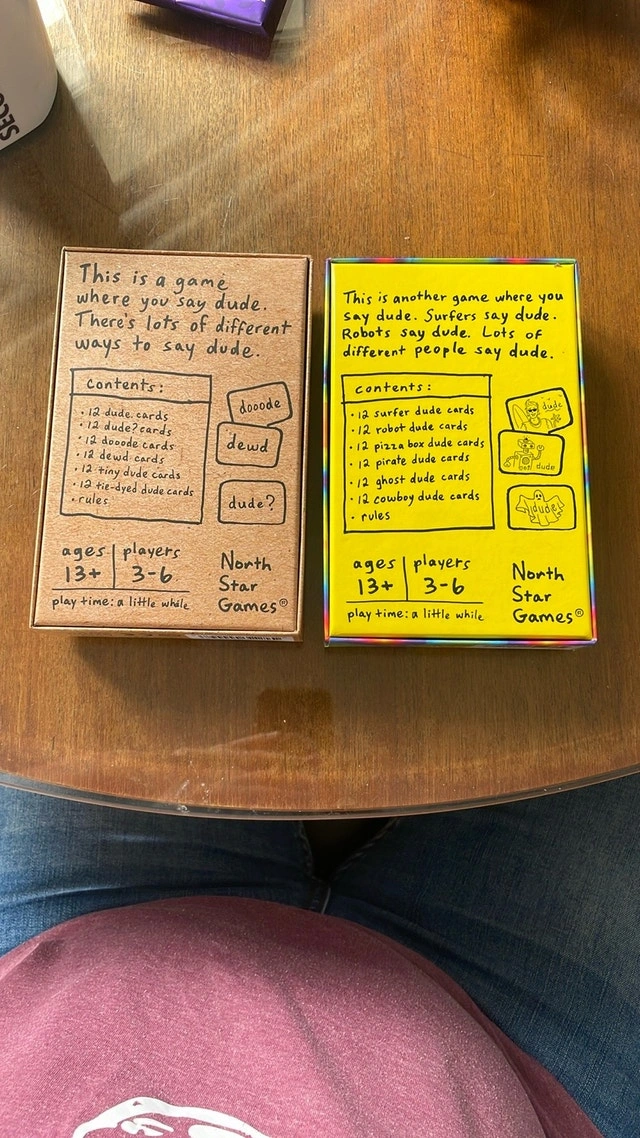 SECO
This is a game
where you say dude.
There's lots of different
ways to say dude.
contents:
• 12 dude cards
• 12 dude? cards
• 12 dooode cards
• 12 dewd cards
• 12 tiny dude cards
• 12 tie-dyed dude cards
• rules
dooode
dewd
dude?
ages players
13+ 3-6
play time: a little while
North
Star
Games®
This is another game where you
say dude. Surfers say dude.
Robots say dude. Lots of
different people say dude.
contents:
• 12 surfer dude cards
• 12 robot dude cards
• 12 pizza box dude cards
• 12 pirate dude cards
• 12 ghost dude cards
• 12 cowboy dude cards
• rules
dude
dude
dude
ages players
13+ 3-6
play time: a little while
North
Star
Games®